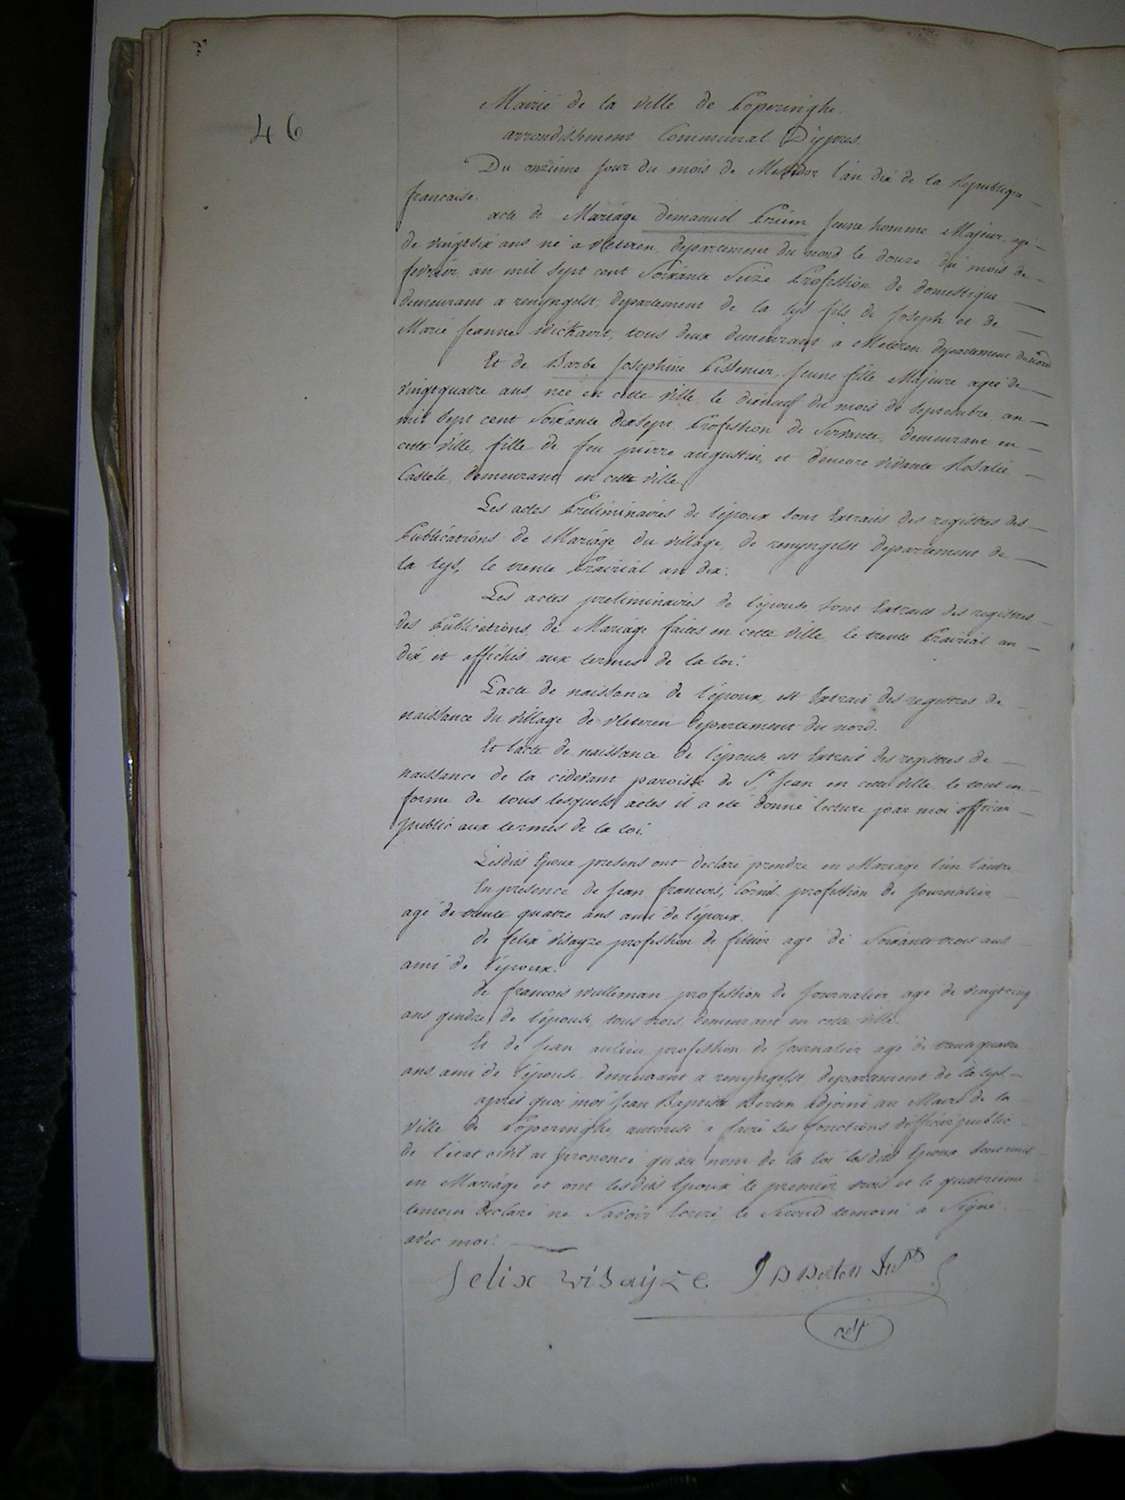 46
Mairie de la ville de Poperinghe
arrondissement Communal D'ypres
Du onzieme jour du mois de Messidor l'an dix de la Republique
francaise.
acte de Mariage d'emanuel jeune homme Majeur agé
de vingt six ans né a Meteren, departement du nord le douze du mois de
fevrier an mil sept cent Soixante Seize Profession de domestique
demeurant a renyngelst, departement de la Lys fils de Joseph et de
Marie Jeanne tous deux demeurant a Meteren departement du nord
Et de Barbe Josephine jeune fille Majeure agée de
vingt quatre ans, née en cette ville le dixneuf du mois de Septembre an
mil Sept cent Soixante dixsept, Profession de Servante, demeurant en
cette ville, fille de feu pierre augustin, et vivante Rosalie
Castele, demeurant en cette ville
Les actes Preliminaires de l'époux Sont Extraits des registres des
Publications de Mariage du village, de renyngelst departement de
la Lys, le trente Prairial an dix.
Les actes preliminaires de l'épouse Sont Extraits des registres
des Publications, de Mariage faites en cette ville le trente Prairial an
dix et affichés aux termes de la loi.
L'acte de naissance de l'époux, est Extrait des registres de
naissance du village de Meteren departement du nord.
Et l'acte de naissance de l'épouse est Extrait des registres de
naissance de la cidevant paroisse de St Jean en cette ville, le tout en
forme de tous lesquels actes il a été donné lecture par moi officier
public aux termes de la loi.
Lesdits Epoux presens ont declaré prendre en Mariage l'un l'autre
En presence de Jean francois, profession de Journalier
agé de trente quatre ans ami de l'époux.
de felix Visayze profession de agé de Soixante trois ans
ami de l'époux.
de francois profession de Journalier agé de vingt cinq
ans de l'épouse, tous trois demeurant en cette ville.
Et de Jean profession de Journalier agé de trente quatre
ans ami de l'épouse, demeurant a renyngelst, departement de la Lys
après quoi moi Jean Baptiste Adjoint au Maire de la
ville de Poperinghe, autorisé a faire les fonctions d'officier public
de l'état civil ai prononcé qu'au nom de la loi lesdits Epoux Sont unis
en Mariage et ont lesdits Epoux le premier trois et le quatrieme
temoin declaré ne Savoir Ecrire le Second temoin a Signé
avec moi.
felix visayze